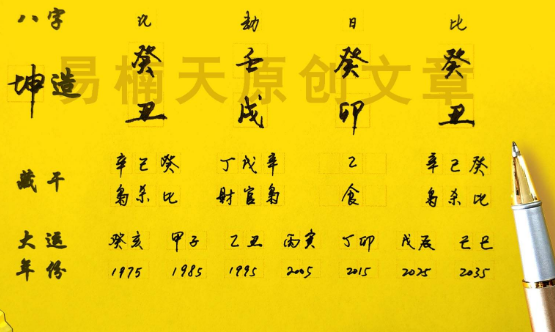 八字 比 劫 日 比
坤造 癸 壬 癸 癸
易楠天原创文章
丑 戌 卯 丑
藏干 辛己癸 丁戊辛 乙 辛己癸
枭杀比 财官枭 食 枭杀比
大运 癸亥 甲子 乙丑 丙寅 丁卯 戊辰 己巳
年份 1975 1985 1995 2005 2015 2025 2035